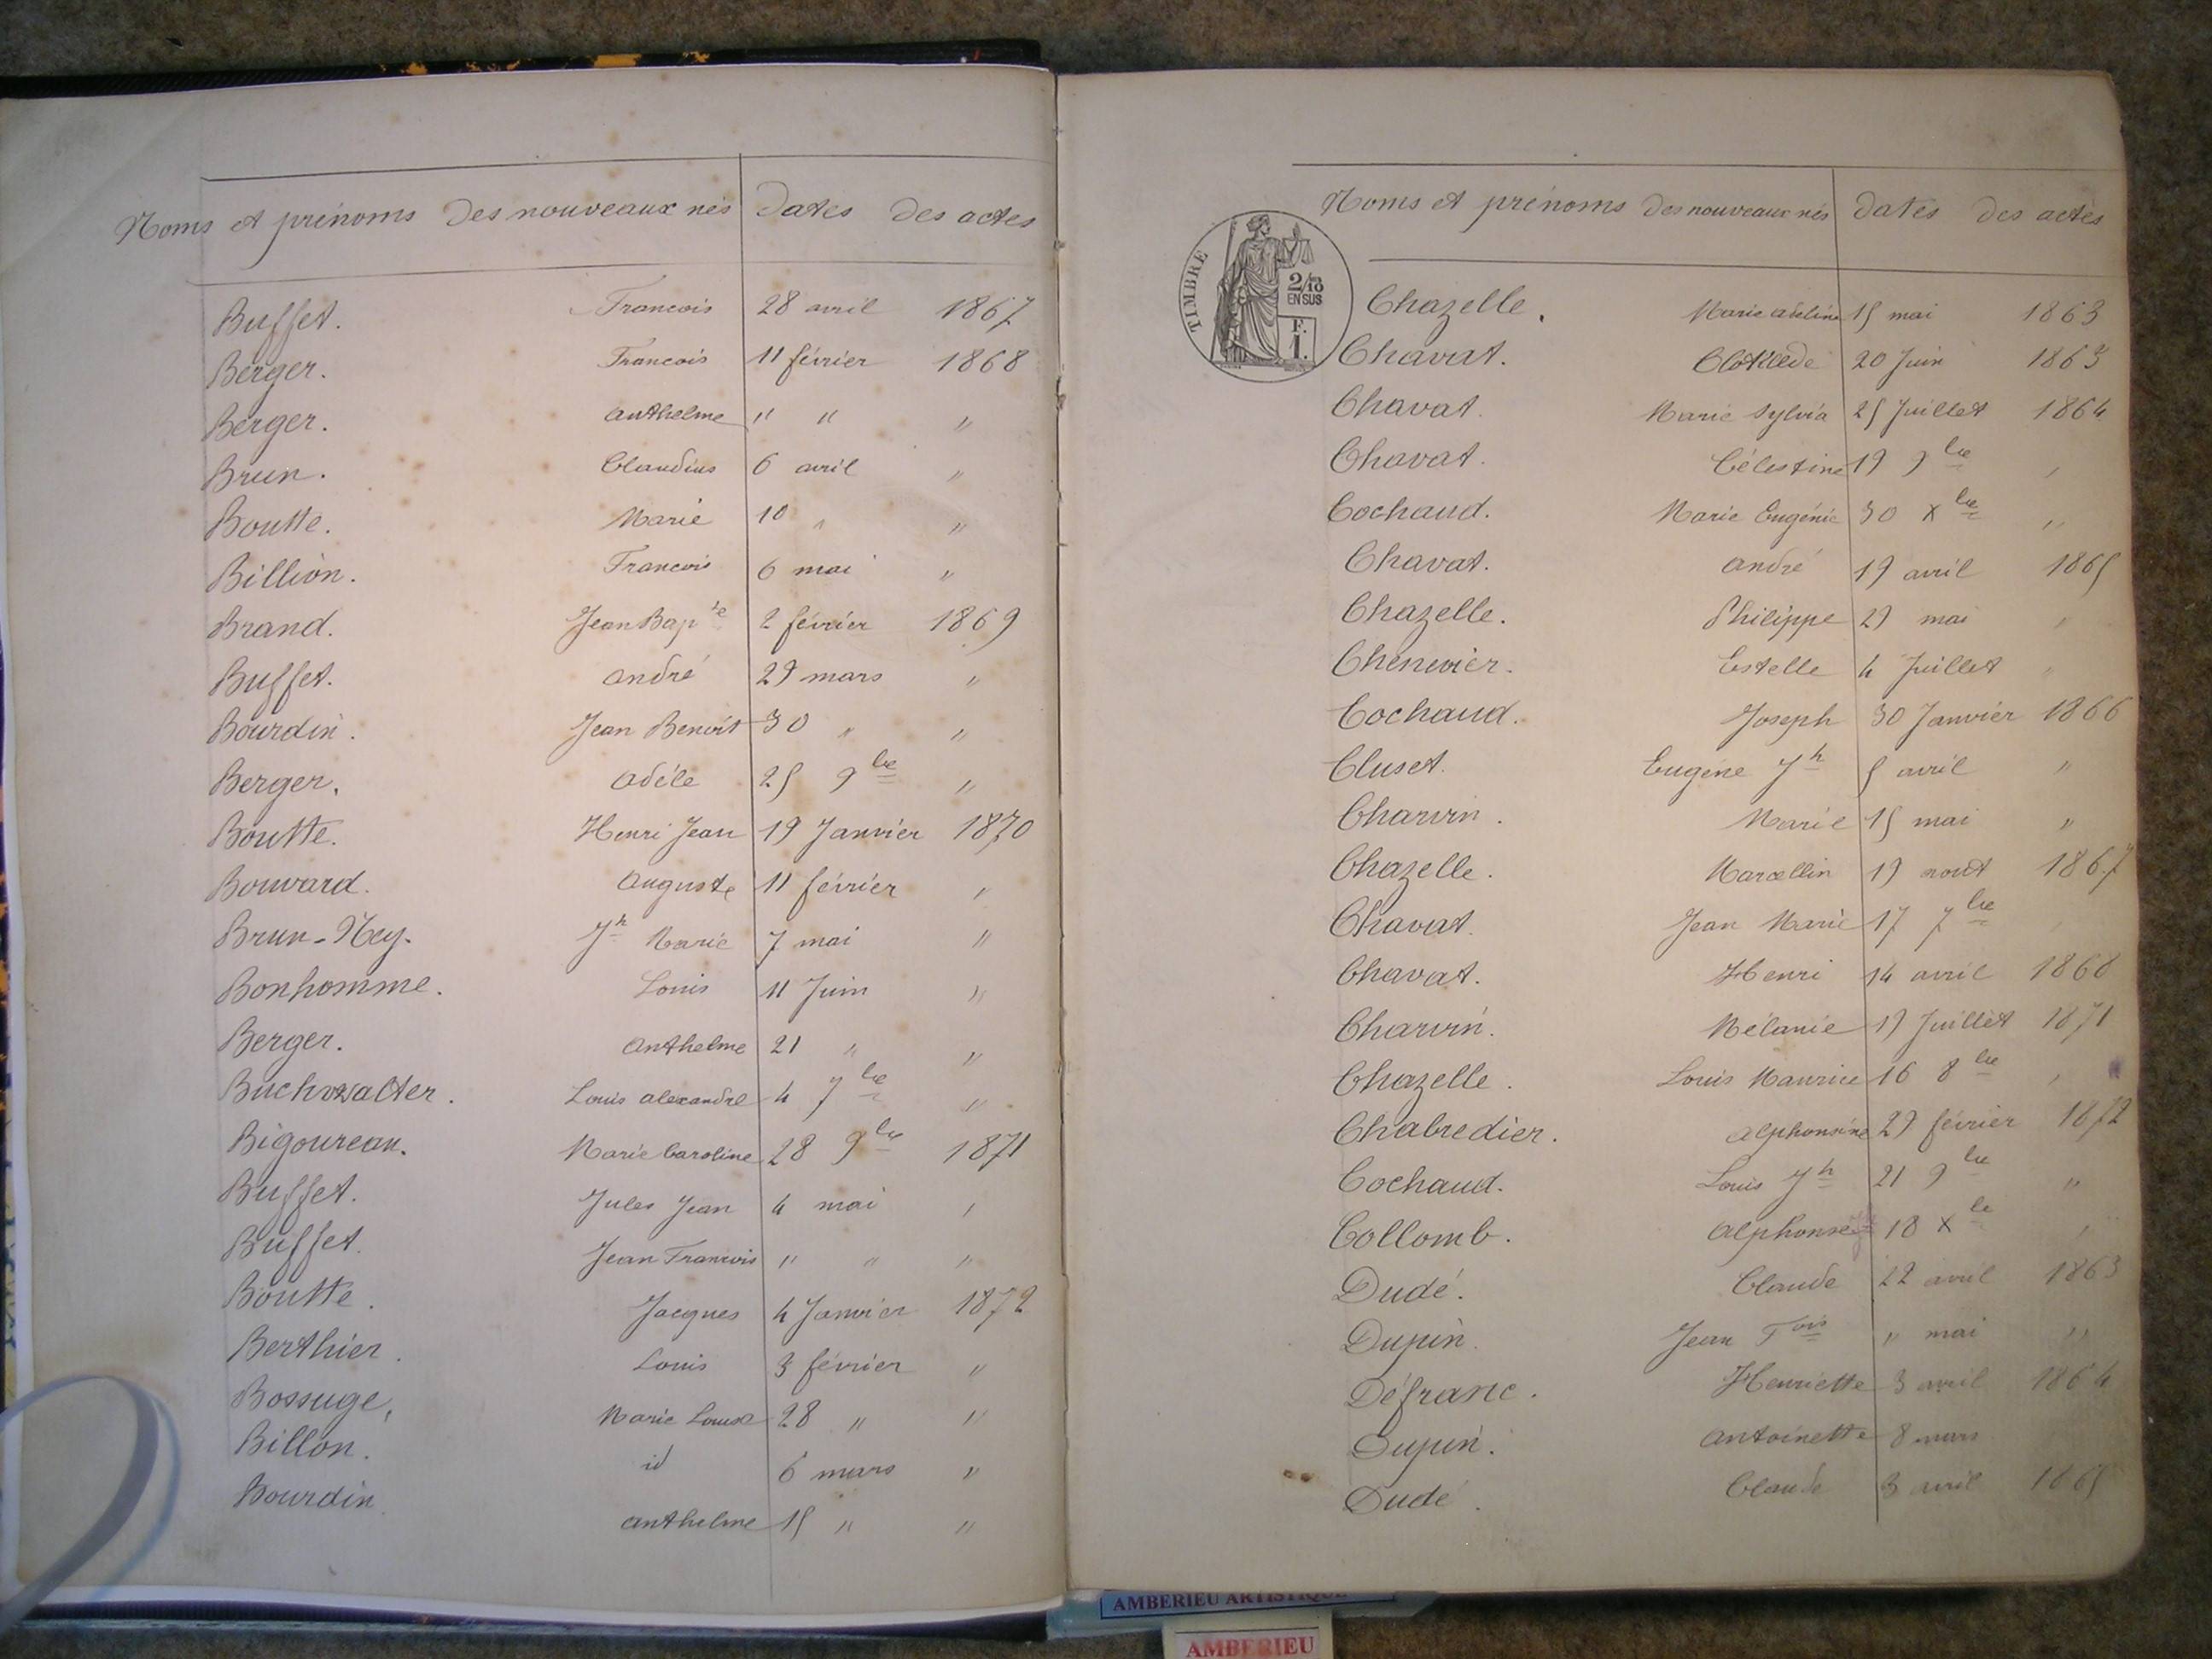 Noms et prénoms des nouveaux nés dates des actes
Buffet. Francois 28 avril 1867
Berger. Francois 11 février 1868
Berger. anthelme " " "
Brun. Claudius 6 avril "
Boutte. Marie 10 " "
Billion. Francois 6 mai "
Brand. Jean Bapte 2 février 1869
Buffet. andré 29 mars "
Bourdin. Jean Benoit 30 " "
Berger. adèle 25 9bre "
Boutte. Henri Jean 19 Janvier 1870
Bouvard. auguste 11 février "
Brun-Ney. Jh Marie 7 mai "
Bonhomme. Louis 11 Juin "
Berger. anthelme 21 " "
Buchwalter. Louis alexandre 4 7bre "
Bigourean. Marie Caroline 28 9bre 1871
Buffet. Jules Jean 4 mai "
Buffet. Jean Francois " " "
Boutte. Jacques 4 Janvier 1872
Berthier. Louis 3 février "
Bossuge, Marie Louise 28 " "
Billon. id 6 mars "
Bourdin anthelme 15 " "
Noms et prénoms des nouveaux nés dates des actes
TIMBRE
2/10
EN SUS
F.
1.
Chazelle. Marie adeline 15 mai 1863
Chavat. Clotilede 20 Juin 1863
Chavat. Marie Sylvia 25 Juillet 1864
Chavat. Célestine 19 9bre "
Cochaud. Marie Eugénie 30 Xbre "
Chavat. andré 19 avril 1865
Chazelle. Philippe 29 mai "
Chenevier. Estelle 4 Juillet "
Cochaud. Joseph 30 Janvier 1866
Cluset. Eugène Jh 5 avril "
Charvin. Marie 15 mai "
Chazelle. Marcellin 19 aout 1867
Chavat. Jean Marie 17 7bre "
Chavat. Henri 14 avril 1868
Charvin. Mélanie 19 Juillet 1871
Chazelle. Louis Maurice 16 8bre "
Chabredier. alphonsine 29 février 1872
Cochaud. Louis Jh 21 9bre "
Collomb. alphonse 18 Xbre "
Dudé. Claude 22 avril 1863
Dupin. Jean Fois " mai "
Défranc. Henriette 3 avril 1864
Dupin. antoinette 8 mars
Dudé. Claude 3 avril 1865
AMBERIEU ARTISTIQUE
AMBERIEU